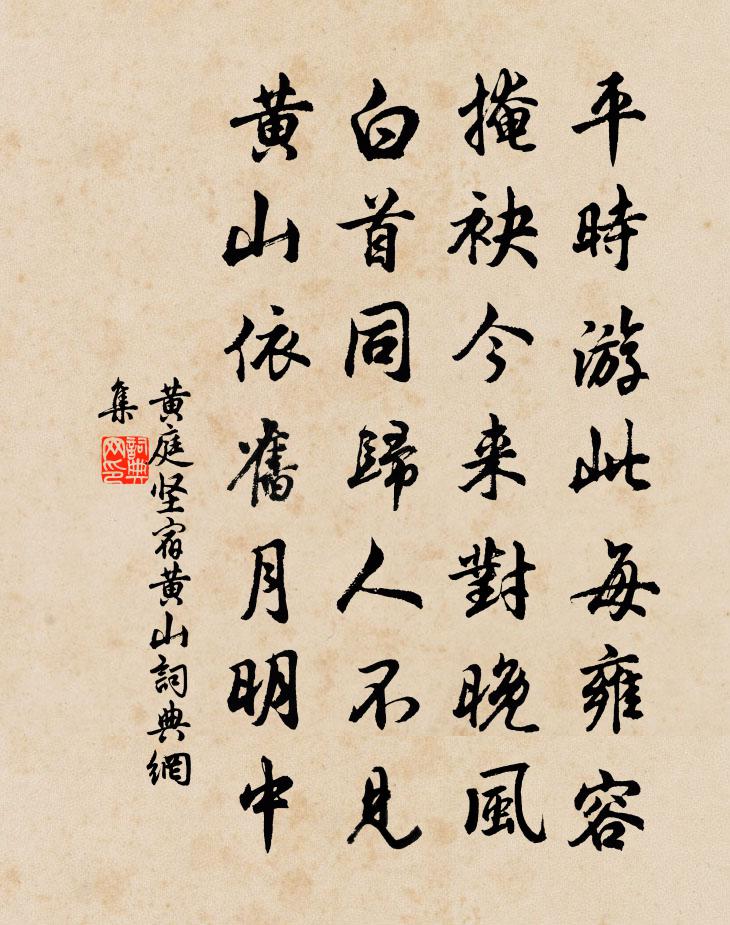 平時游此每雍容
掩袂今来對晚風
白首同歸人不見
黃山依舊月明中
黄庭坚宿黄山詞典網
集
詞典
网印